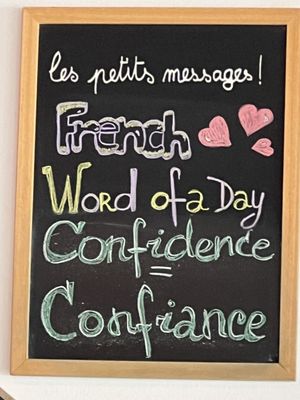 les petits messages!
French
Word of a Day
Confidence
=
Confiance